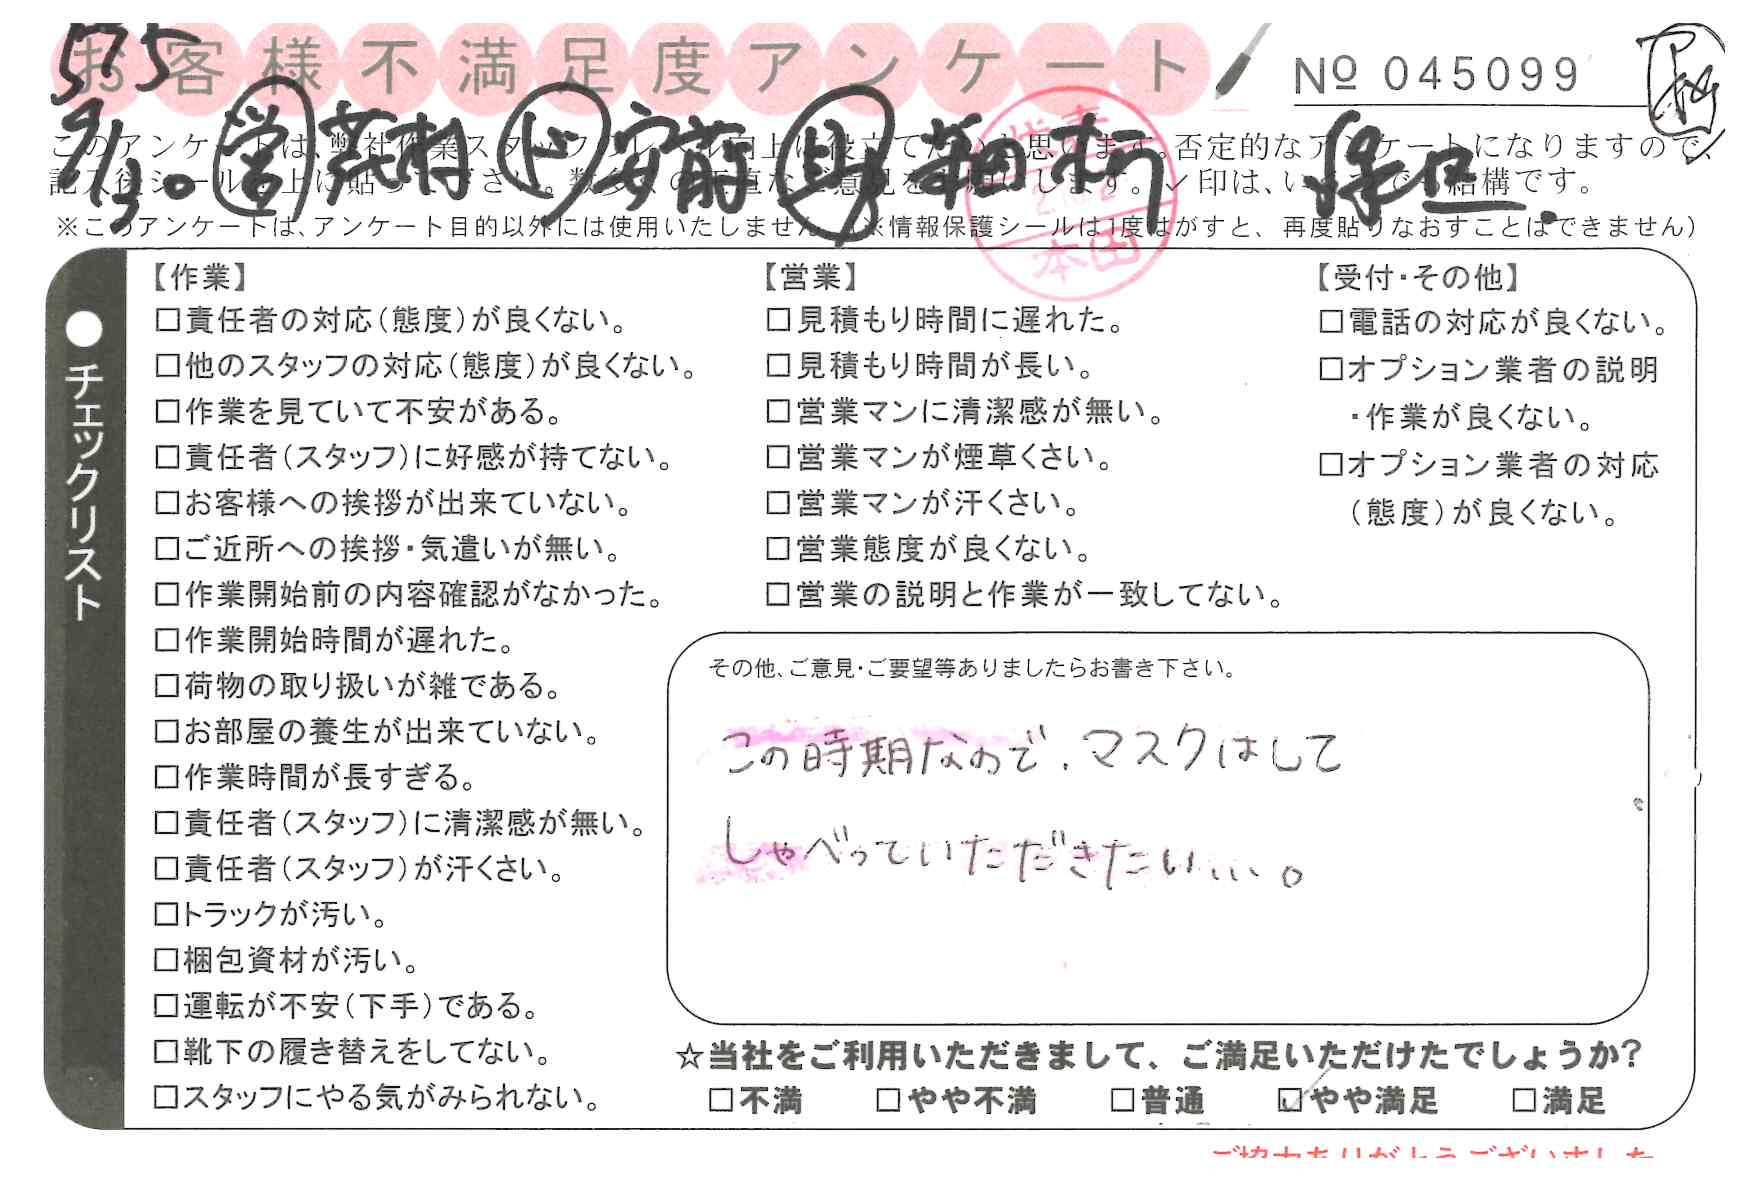 575
お客様不満足度アンケート
№ 045099
9/13。 営 ド 安前 見
このアンケートは、弊社作業スタッフのレベル向上に役立てたいと思います。否定的なアンケートになりますので、
記入後シールを上に貼って下さい。数多くの正直なご意見をお願いします。✓印は、いくつでも結構です。
※このアンケートは、アンケート目的以外には使用いたしません。(※情報保護シールは1度はがすと、再度貼りなおすことはできません)
本田
●チェックリスト
【作業】
□責任者の対応(態度)が良くない。
□他のスタッフの対応(態度)が良くない。
□作業を見ていて不安がある。
□責任者(スタッフ)に好感が持てない。
□お客様への挨拶が出来ていない。
□ご近所への挨拶・気遣いが無い。
□作業開始前の内容確認がなかった。
□作業開始時間が遅れた。
□荷物の取り扱いが雑である。
□お部屋の養生が出来ていない。
□作業時間が長すぎる。
□責任者(スタッフ)に清潔感が無い。
□責任者(スタッフ)が汗くさい。
□トラックが汚い。
□梱包資材が汚い。
□運転が不安(下手)である。
□靴下の履き替えをしてない。
□スタッフにやる気がみられない。
【営業】
□見積もり時間に遅れた。
□見積もり時間が長い。
□営業マンに清潔感が無い。
□営業マンが煙草くさい。
□営業マンが汗くさい。
□営業態度が良くない。
□営業の説明と作業が一致してない。
【受付・その他】
□電話の対応が良くない。
□オプション業者の説明
・作業が良くない。
□オプション業者の対応
(態度)が良くない。
その他、ご意見・ご要望等ありましたらお書き下さい。
この時期なので、マスクはして
しゃべっていただきたい…。
☆当社をご利用いただきまして、ご満足いただけたでしょうか?
□不満 □やや不満 □普通 ☑やや満足 □満足
ご協力ありがとうございました